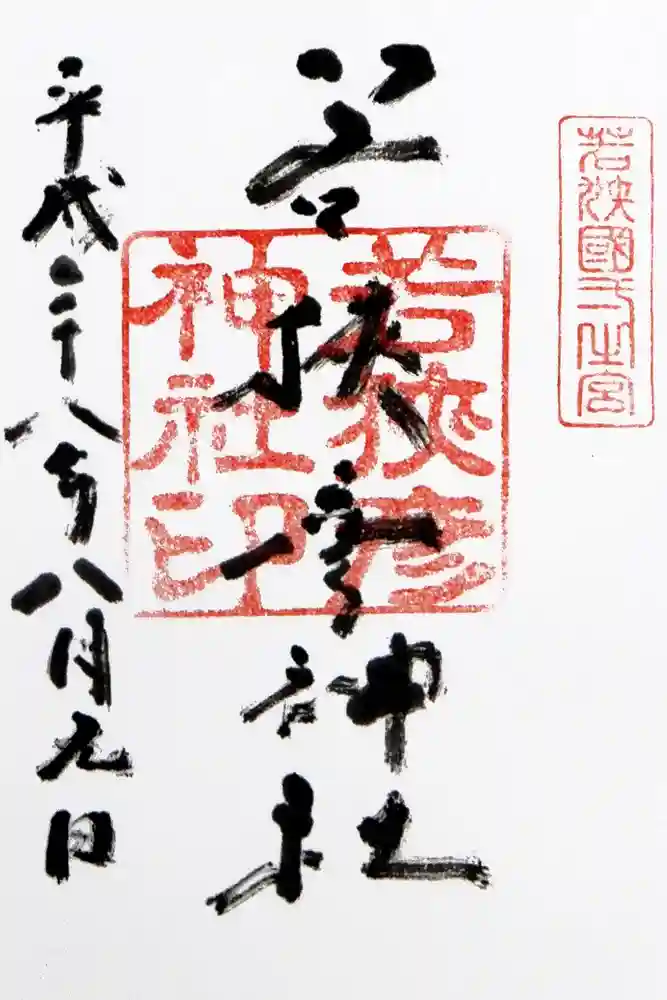 若狹國一之宮
若狭彦神社
若狹彦
神社印
平成二十八年八月九日